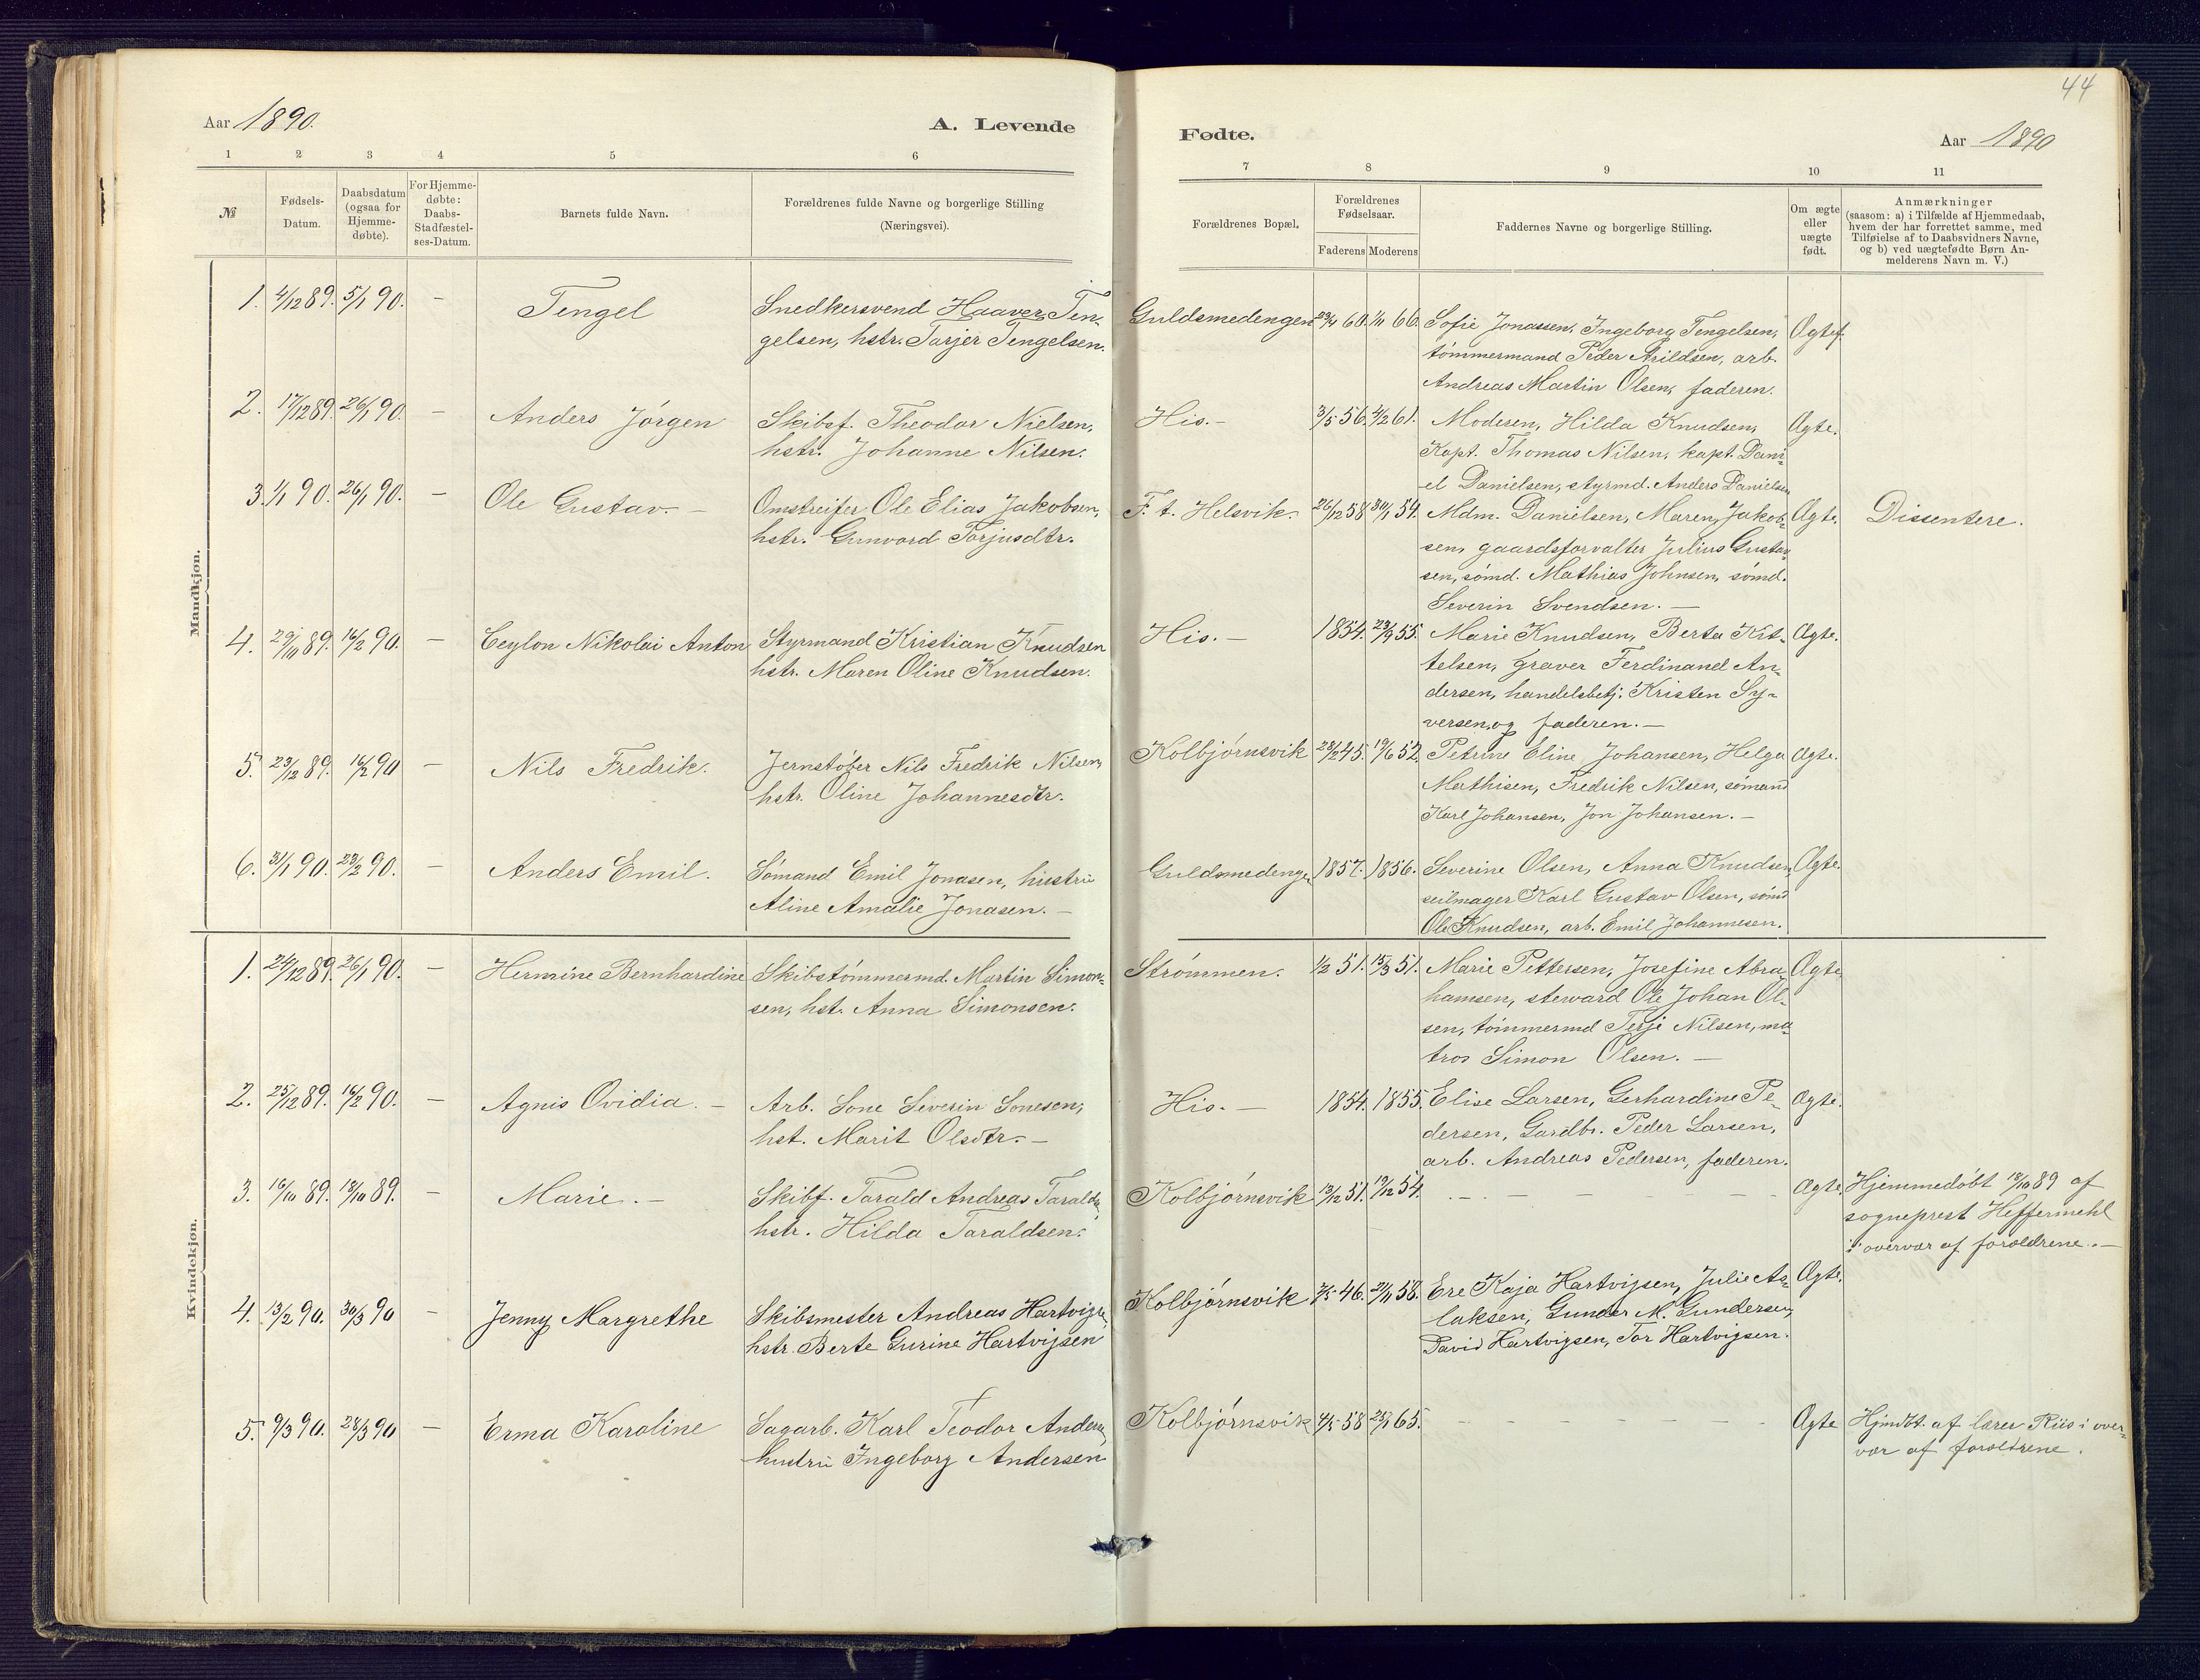 44
Aar 1890.
A. Levende
Fødte.
Aar 1890
1 2 3 4 5 6
7 8 9 10 11
№
Fødsels-
Datum.
Daabsdatum
(ogsaa for
Hjemme-
døbte).
For Hjemme-
døbte:
Daabs-
Stadfæstel-
ses-Datum.
Barnets fulde Navn.
Forældrenes fulde Navne og borgerlige Stilling
(Næringsvei).
Forældrenes Bopæl.
Forældrenes
Fødselsaar.
Faderens Moderens
Faddernes Navne og borgerlige Stilling.
Om ægte
eller
uægte
født.
Anmærkninger
(saasom: a) i Tilfælde af Hjemmedaab,
hvem der har forrettet samme, med
Tilføielse af to Daabsvidners Navne,
og b) ved uægtefødte Børn An-
melderens Navn m. V.)
Mandkjøn.
1. 4/12 89. 5/1 90. –
Tengel
Snedkersvend Haaver Ten-
gelsen, hstr. Tarjer Tengelsen.
Guldsmedengen 29/4 60. 1/11 60.
Sofie Jonassen, Ingeborg Tengelsen,
tømmermand Peder Arildsen, arb.
Andreas Martin Olsen, faderen.
Ægtef.
2. 17/12 89. 26/1 90. –
Anders Jørgen
Skibsf. Theodor Nielsen,
hstr. Johanne Nilsen.
His. – 3/5 56. 4/2 61.
Moderen, Hilda Knudsen,
Kapt. Thomas Nilsen, kapt. Dani-
el Danielsen, styrmd. Anders Danielsen
Ægte.
3. 1/1 90. 26/1 90. –
Ole Gustav. –
Omstreifer Ole Elias Jakobsen,
hstr. Gunvord Torjusdtr.
F. t. Helsvik. 26/12 58 30/1 54.
Mdm. Danielsen, Maren Jakob-
sen, gaardsforvalter Julius Gustav-
sen, sømd. Mathias Johnsen, sømd.
Severin Svendsen. –
Ægte.
Dissentere.
4. 29/10 89. 16/2 90. –
Ceylon Nikolai Anton
Styrmand Kristian Knudsen
hstr. Maren Oline Knudsen.
His. – 1854. 23/9 55.
Marie Knudsen, Berta Kit-
telsen, graver Ferdinand An-
dersen, handelsbetj. Kristen Sy-
versen, og faderen. –
Ægte.
5. 23/12 89. 16/2 90 –
Nils Fredrik.
Jernstøber Nils Fredrik Nilsen,
hstr. Oline Johannesdtr.
Kolbjørnsvik 23/2 45. 19/6 52.
Petrine Eline Johansen, Helga
Mathisen, Fredrik Nilsen, sømand
Karl Johansen, Jon Johansen. –
Ægte.
6. 31/1 90. 23/2 90. –
Anders Emil.
Sømand Emil Jonasen, hustru
Aline Amalie Jonasen. –
Guldsmedengen 1857. 1856.
Severine Olsen, Anna Knudsen,
seilmager Karl Gustav Olsen, sømd
Ole Knudsen, arb. Emil Johannesen.
Ægte.
Kvindekjøn.
1. 24/12 89. 26/1 90. –
Hermine Bernhardine
Skibstømmermd. Martin Simon-
sen, hst. Anna Simonsen.
Strømmen. 1/2 51. 15/3 51.
Marie Pettersen, Josefine Abra-
hamsen, steward Ole Johan Ol-
sen, tømmermd Terje Nilsen, ma-
tros Simon Olsen. –
Ægte
2. 25/12 89. 16/2 90. –
Agnis Ovidia. –
Arb. Sone Severin Sonesen,
hst. Marit Olsdtr. –
His. – 1854. 1855.
Elise Larsen, Gerhardine Pe-
dersen, Gardbr. Peder Larsen,
arb. Andreas Pedersen, faderen.
Ægte.
3. 16/10 89. 18/10 89. –
Marie. –
Skibf. Tarald Andreas Taraldsen,
hstr. Hilda Taraldsen.
Kolbjørnsvik 13/12 51. 19/12 54.
– – – – –
Ægte.
Hjemmedøbt 18/10 89 af
sogneprest Heffermehl
i overvær af forældrene. –
4. 13/2 90. 30/3 90 –
Jenny Margrethe
Skibsmester Andreas Hartvigsen,
hstr. Berte Gurine Hartvigsen
Kolbjørnsvik 46. 21/11 58.
Ere Kaja Hartvigsen, Julie As-
laksen, Gunder M. Gundersen,
David Hartvigsen, Tor Hartvigsen.
Ægte.
5. 9/3 90. 28/3 90 –
Erma Karoline
Sagarb. Karl Teodor Andersen,
hustru Ingeborg Andersen
Kolbjørnsvik 4/5 58 65.
– – – – – –
Ægte
Hjmdbt. af lærer Riis i over-
vær af forældrene.